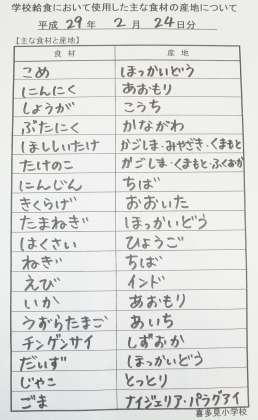 学校給食において使用した主な食材の産地について
平成 29 年 2 月 24 日分
【主な食材と産地】
食 材 産 地
こめ ほっかいどう
にんにく あおもり
しょうが こうち
ぶたにく かながわ
ほししいたけ かごしま・みやざき・くまもと
たけのこ かごしま・くまもと・ふくおか
にんじん ちば
きくらげ おおいた
たまねぎ ほっかいどう
はくさい ひょうご
ねぎ ちば
えび インド
いか あおもり
うずらたまご あいち
チンゲンサイ しずおか
だいず ほっかいどう
じゃこ とっとり
ごま ナイジェリア・パラグアイ
喜多見小学校